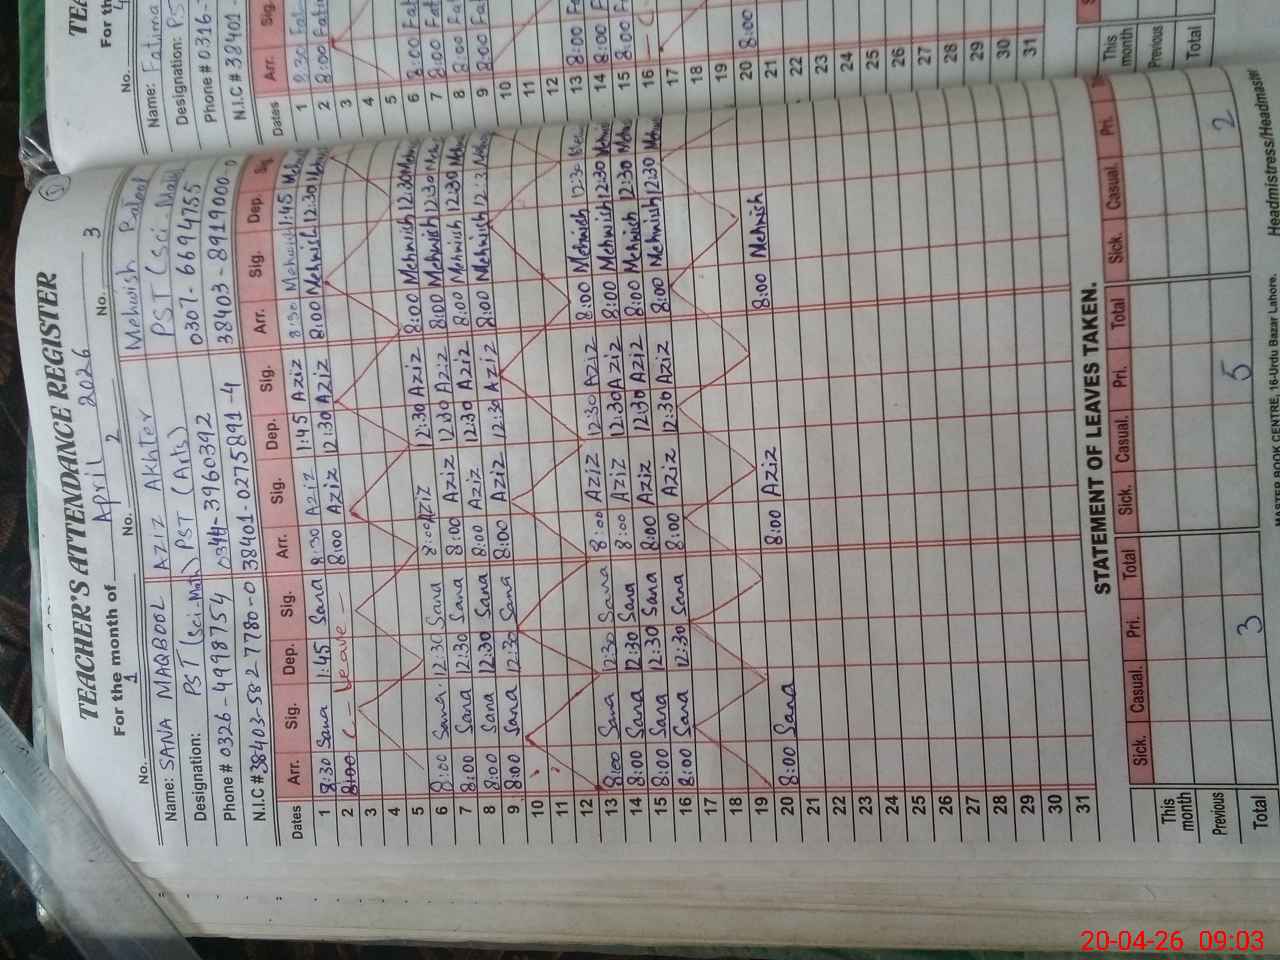 TEACHER'S ATTENDANCE REGISTER
For the month of April 2026
No. 1 No. 2 No. 3
Name: SANA MAQBOOL AZIZ AKHTER Mehwish Batool
Designation: PST (Sci-Math) PST (Arts) PST (Sci-Math)
Phone # 0326-4998754 0344-3960392 0307-6694755
N.I.C # 38403-5827780-0 38401-0275891-4 38403-8919000-0
Dates Arr. Sig. Dep. Sig. Arr. Sig. Dep. Sig. Arr. Sig. Dep. Sig.
1 8:30 Sana 1:45 Sana 8:30 Aziz 1:45 Aziz 8:30 Mehwish 1:45 Meh
2 8:00 C - Leave - 8:00 Aziz 12:30 Aziz 8:00 Mehwish 12:30 Meh
3
4
5
6 8:00 Sana 12:30 Sana 8:00 Aziz 12:30 Aziz 8:00 Mehwish 12:30 Meh
7 8:00 Sana 12:30 Sana 8:00 Aziz 12:30 Aziz 8:00 Mehwish 12:30 Meh
8 8:00 Sana 12:30 Sana 8:00 Aziz 12:30 Aziz 8:00 Mehwish 12:30 Meh
9 8:00 Sana 12:30 Sana 8:00 Aziz 12:30 Aziz 8:00 Mehwish 12:30 Meh
10
11
12
13 8:00 Sana 12:30 Sana 8:00 Aziz 12:30 Aziz 8:00 Mehwish 12:30
14 8:00 Sana 12:30 Sana 8:00 Aziz 12:30 Aziz 8:00 Mehwish 12:30
15 8:00 Sana 12:30 Sana 8:00 Aziz 12:30 Aziz 8:00 Mehwish 12:30
16 8:00 Sana 12:30 Sana 8:00 Aziz 12:30 Aziz 8:00 Mehwish 12:30
17
18
19
20 8:00 Sana 8:00 Aziz 8:00 Mehwish
21
22
23
24
25
26
27
28
29
30
31
STATEMENT OF LEAVES TAKEN.
Sick. Casual. Pri. Total Sick. Casual. Pri. Total Sick. Casual. Pri.
This month
Previous
Total 3 5 2
Headmistress/Headmaster
MASTER BOOK CENTRE, 16-Urdu Bazar Lahore.
For th
No. 4
Name: Fatima
Designation: PS
Phone # 0316-
N.I.C # 38401-
Dates Arr. Sig.
1 8:30
2 8:00
3
4
5
6 8:00
7 8:00
8 8:00
9 8:00
10
11
12
13 8:00
14 8:00
15 8:00
16 - C
17
18
19
20 8:00
21
22
23
24
25
26
27
28
29
30
31
This month
Previous
Total
20-04-26 09:03